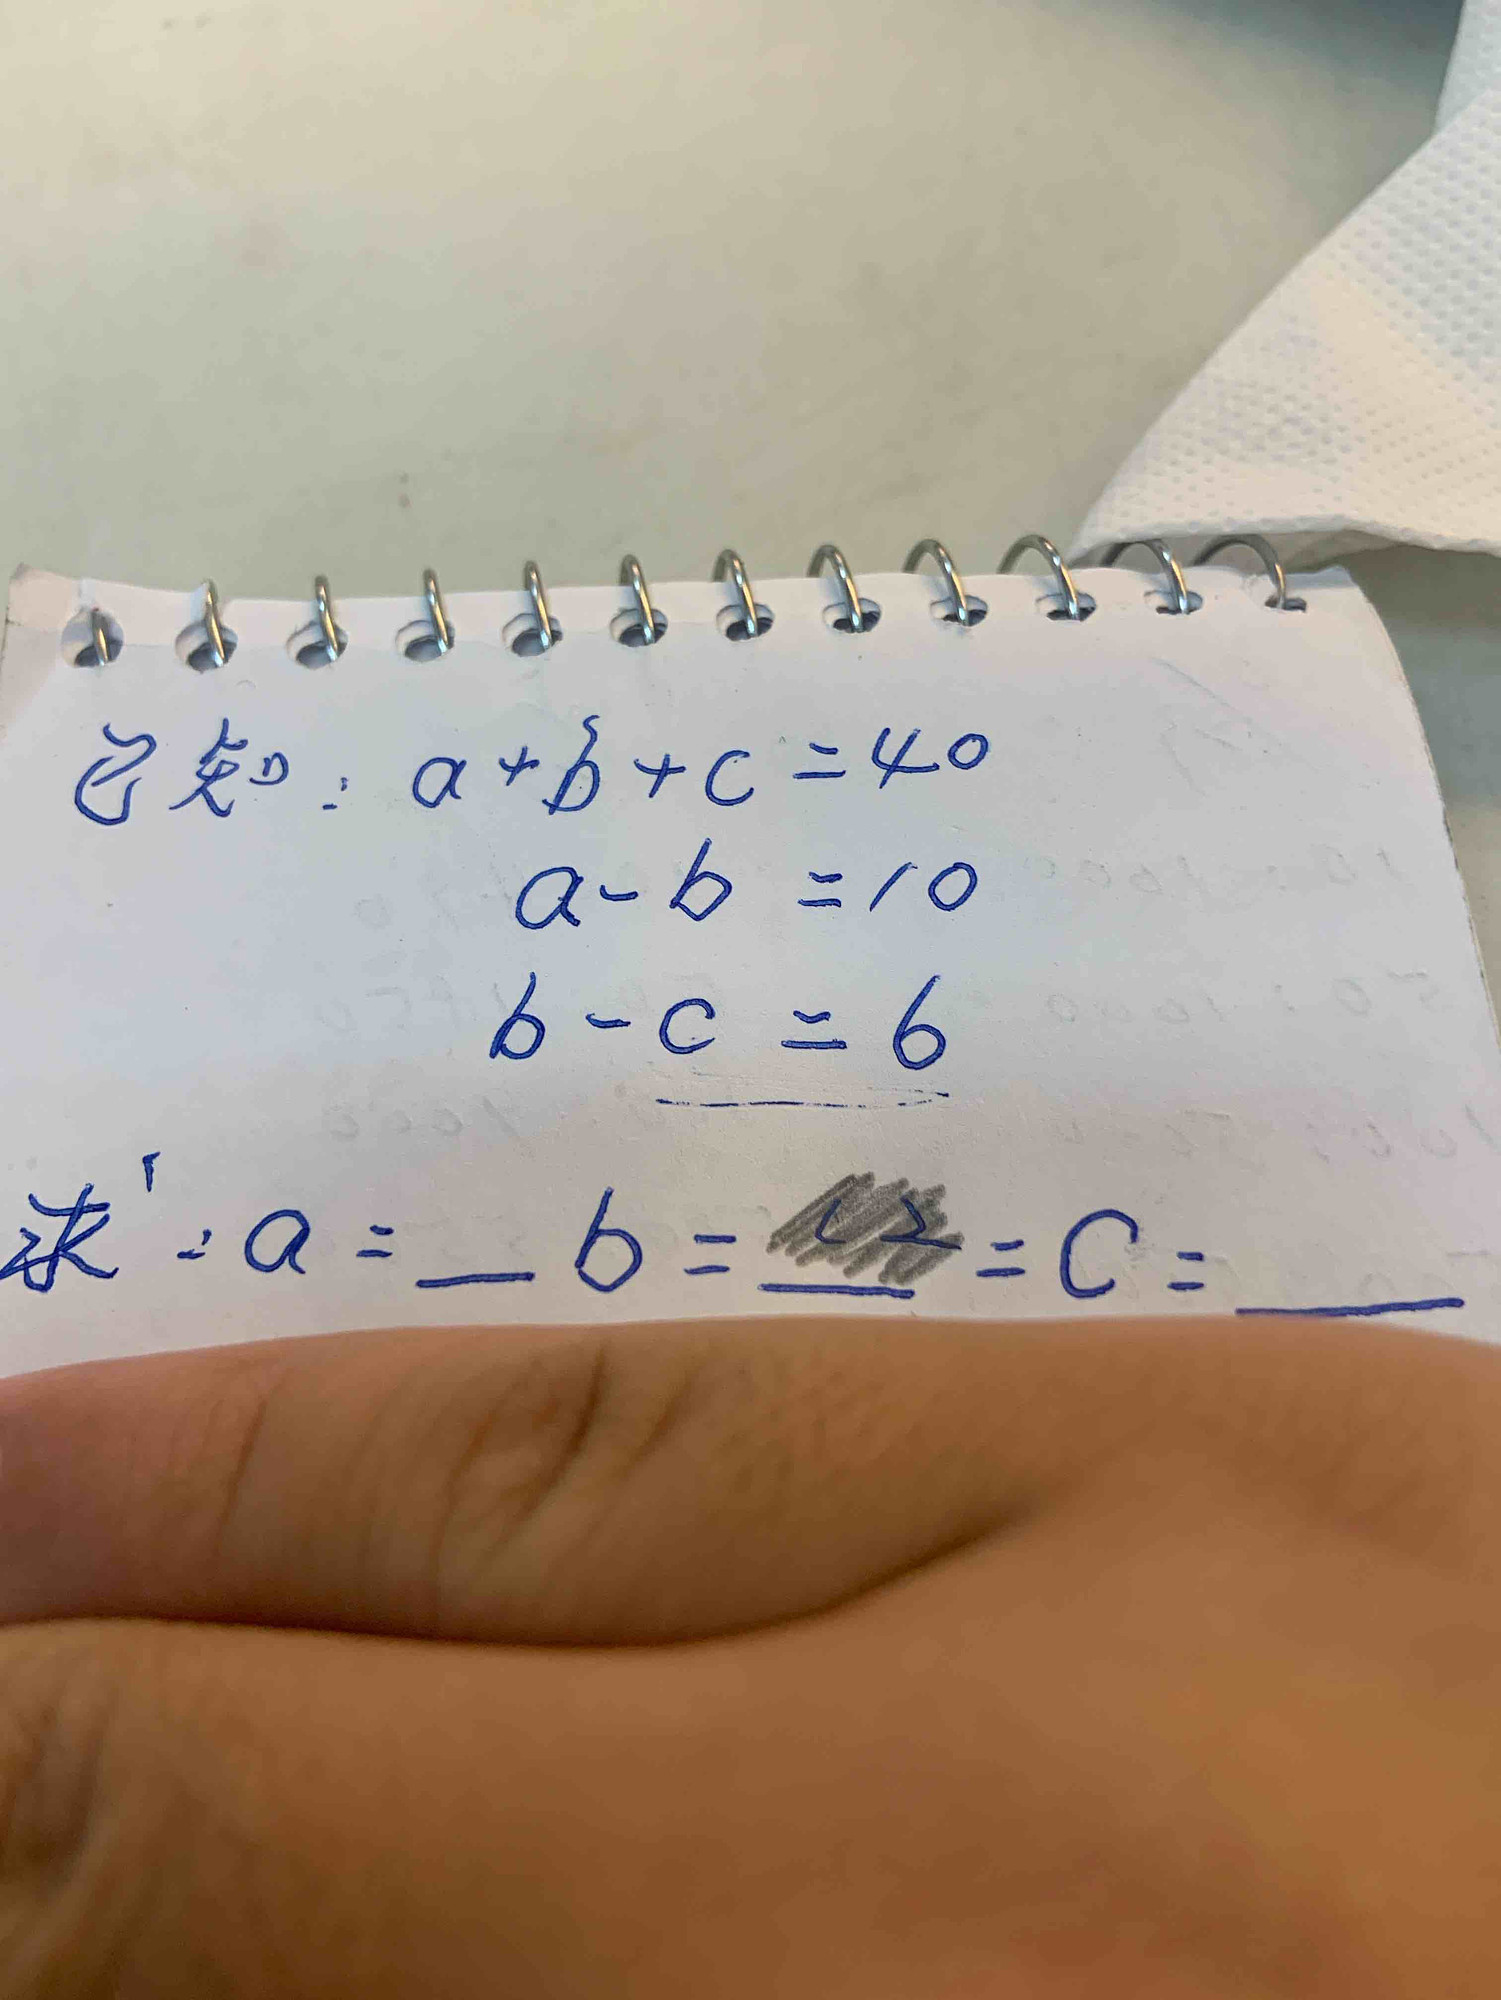 已知：a+b+c=40
a-b=10
b-c=6
求：a=__ b=__=C=__